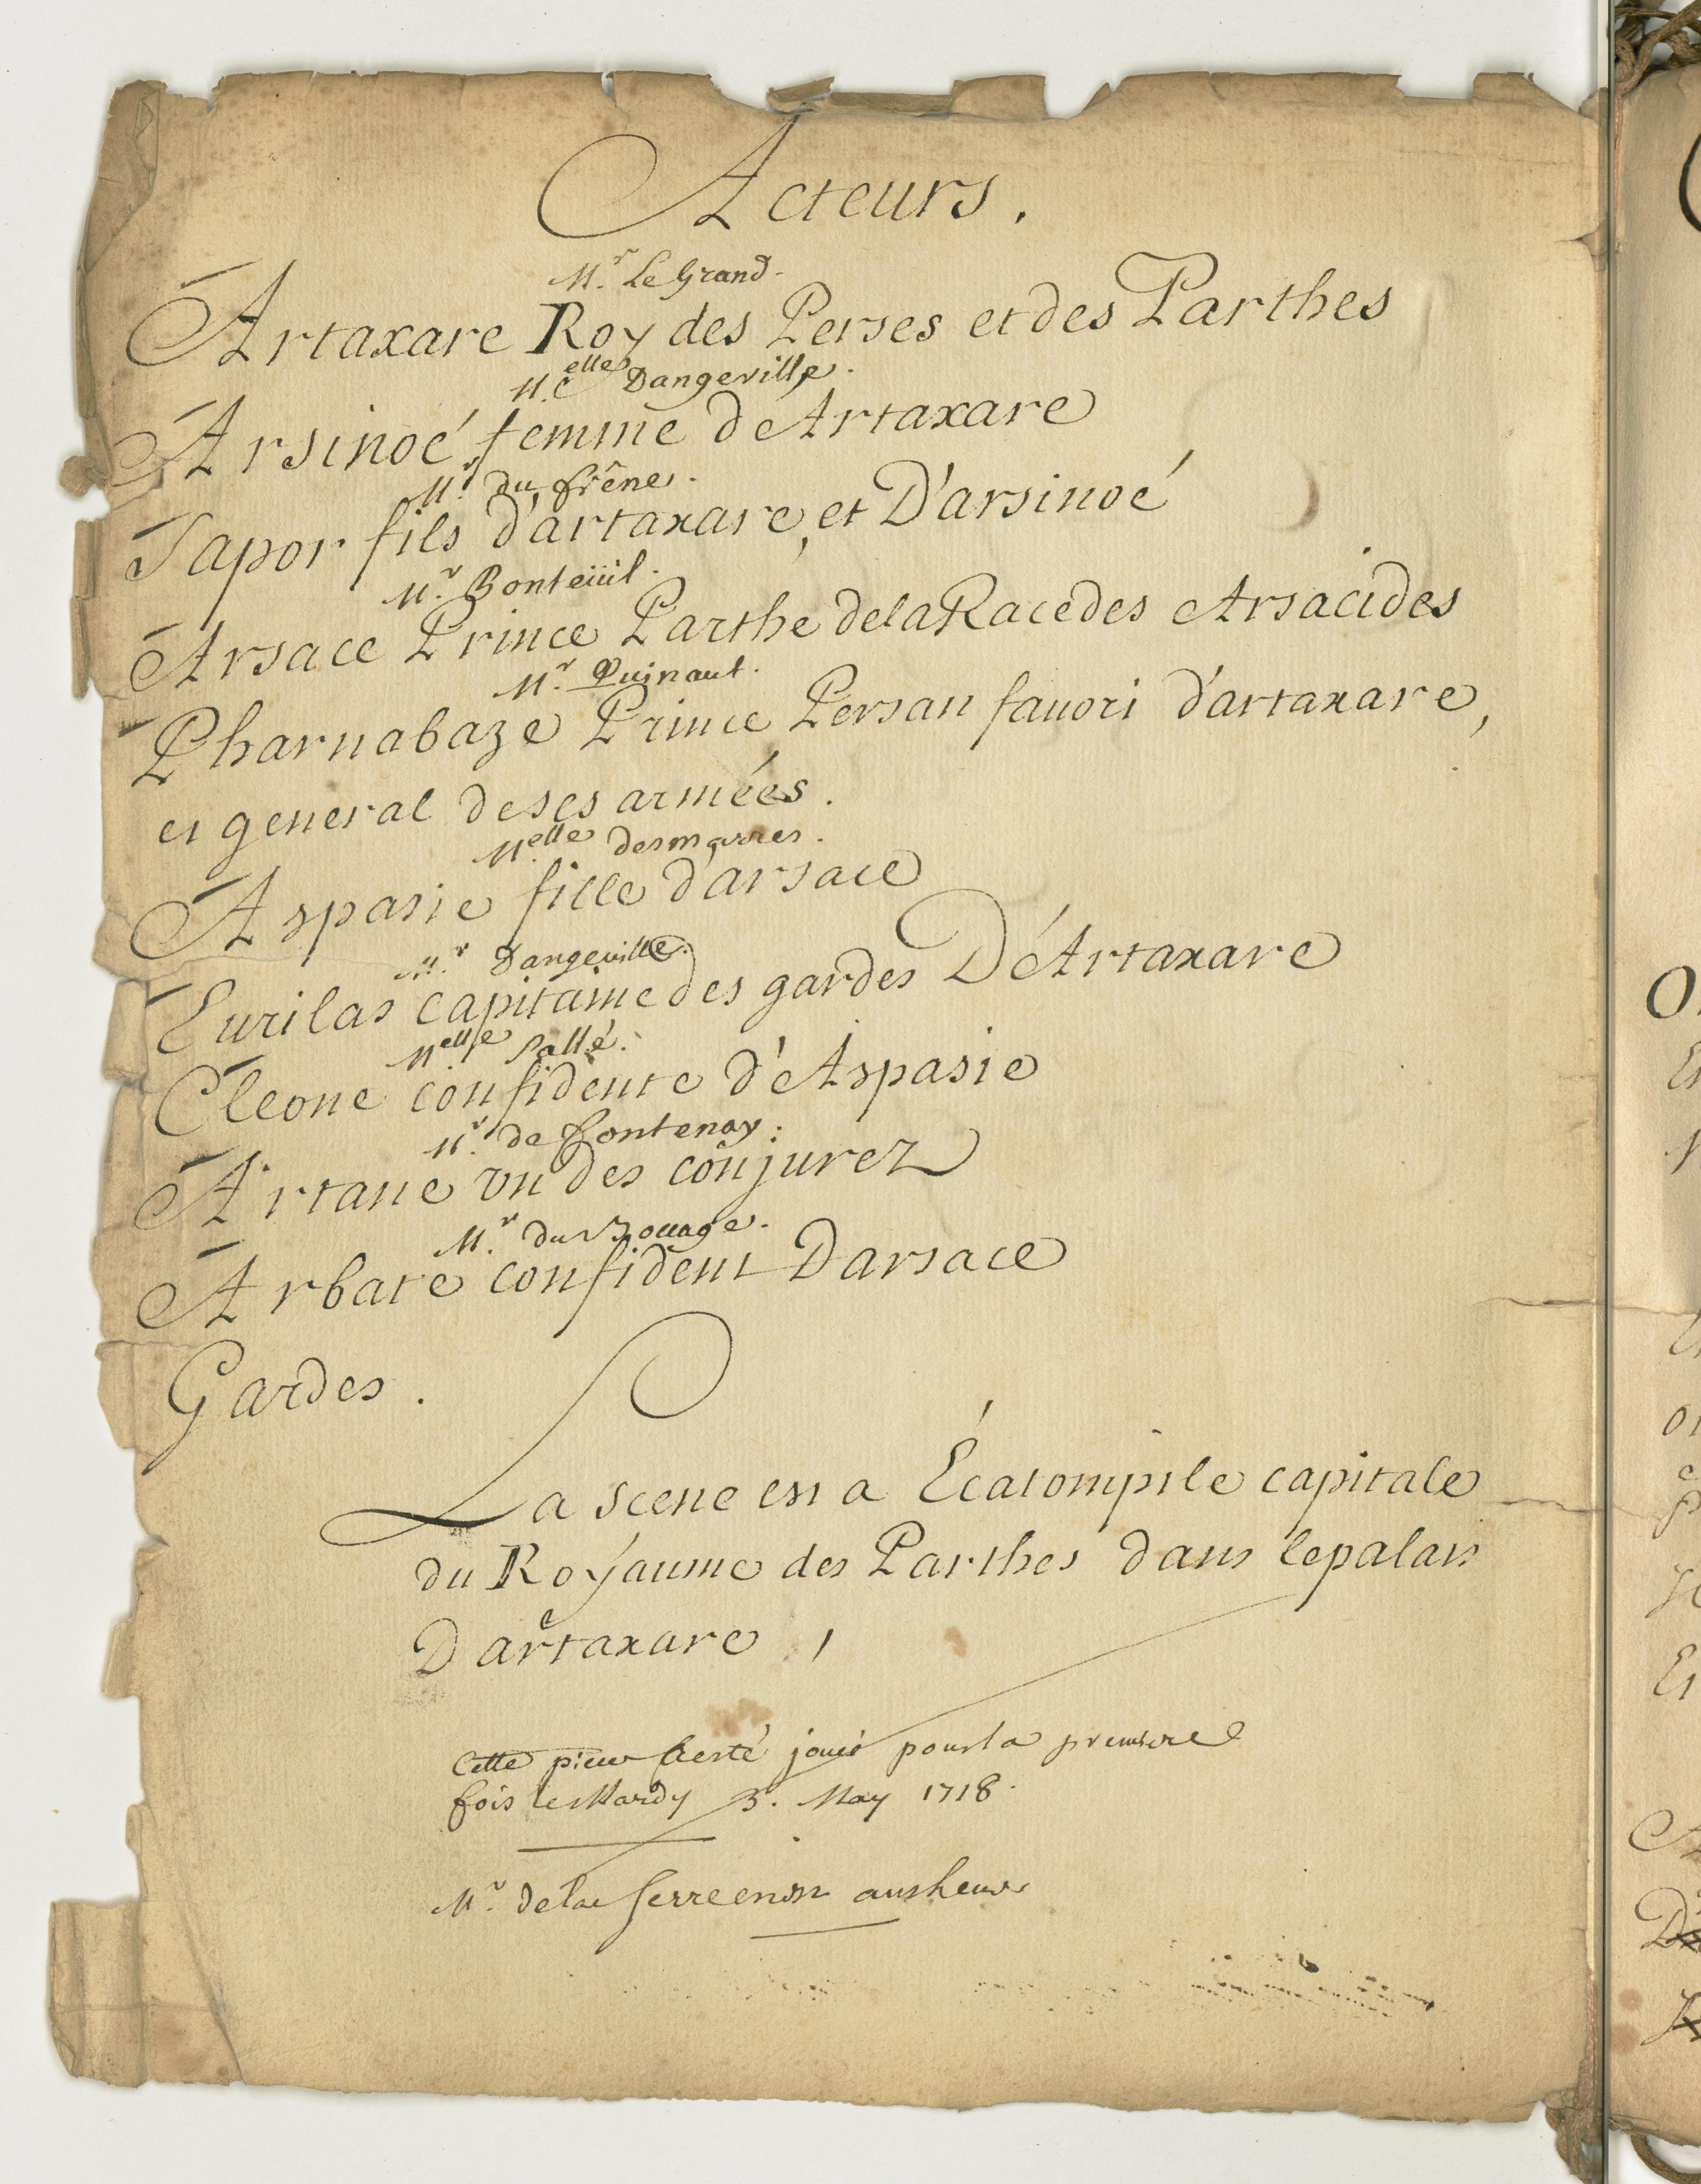 Acteurs.
Mr. Le Grand.
Artaxare Roy des Perses et des Parthes
Melle Dangeville.
Arsinoé femme d'Artaxare
Mr. du frêne.
Sapor fils d'artaxare, et D'arsinoé
Mr. Bonteüil.
Arsace Prince Parthe de la Race des Arsacides
Mr. Quinaut.
Pharnabaze Prince Persan fauori d'artaxare,
et general de ses armées.
Melle desmarres.
Aspasie fille d'arsace
Mr. Dangeuille.
Eurilas capitaine des gardes D'Artaxare
Melle Sallé.
Cleone confidente d'Aspasie
Mr. de fontenay.
Artane vn des conjurez
Mr. du Bouage.
Arbate confident Darsace
Gardes.
La scene est a Écatompile capitale
du Royaume des Parthes dans le palais
Dartaxare,
Cette piece a esté joüée pour la premiere
fois le Mardy 3. May 1718.
Mr. de la Serre en est autheur